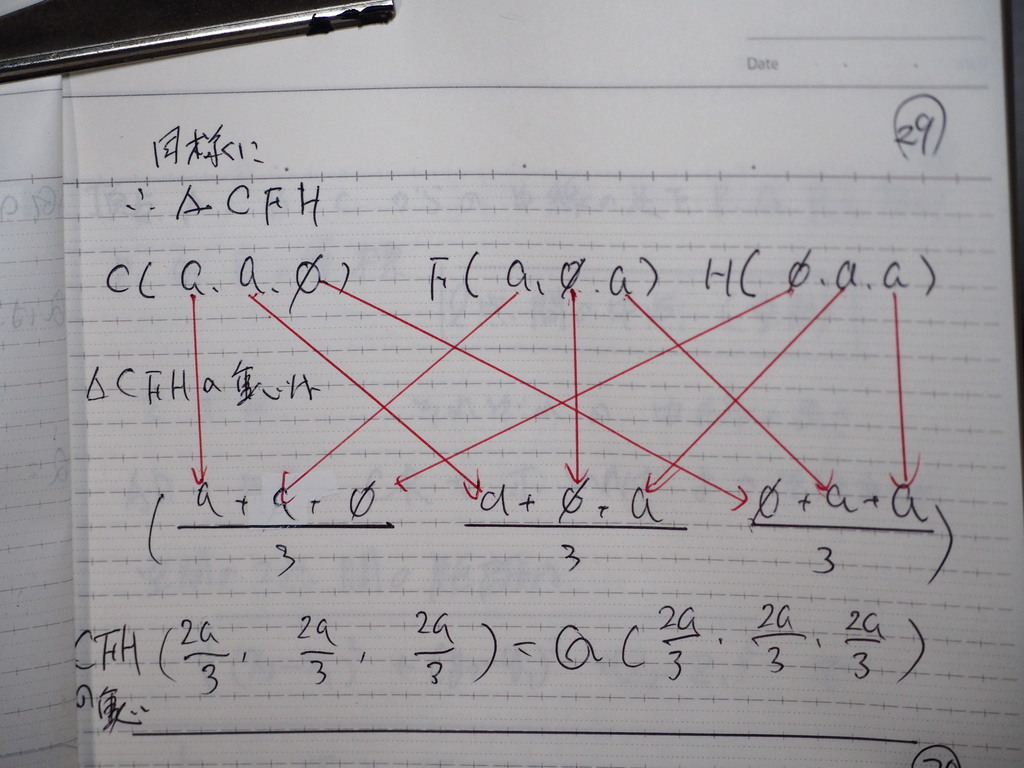 Date
29
同様に
∴ △CFH
C(a, a, 0) F(a, 0, a) H(0, a, a)
△CFHの重心は
(a + a + 0 / 3  a + 0 + a / 3  0 + a + a / 3)
CFH (2a/3, 2a/3, 2a/3) = Q (2a/3, 2a/3, 2a/3)
の重心